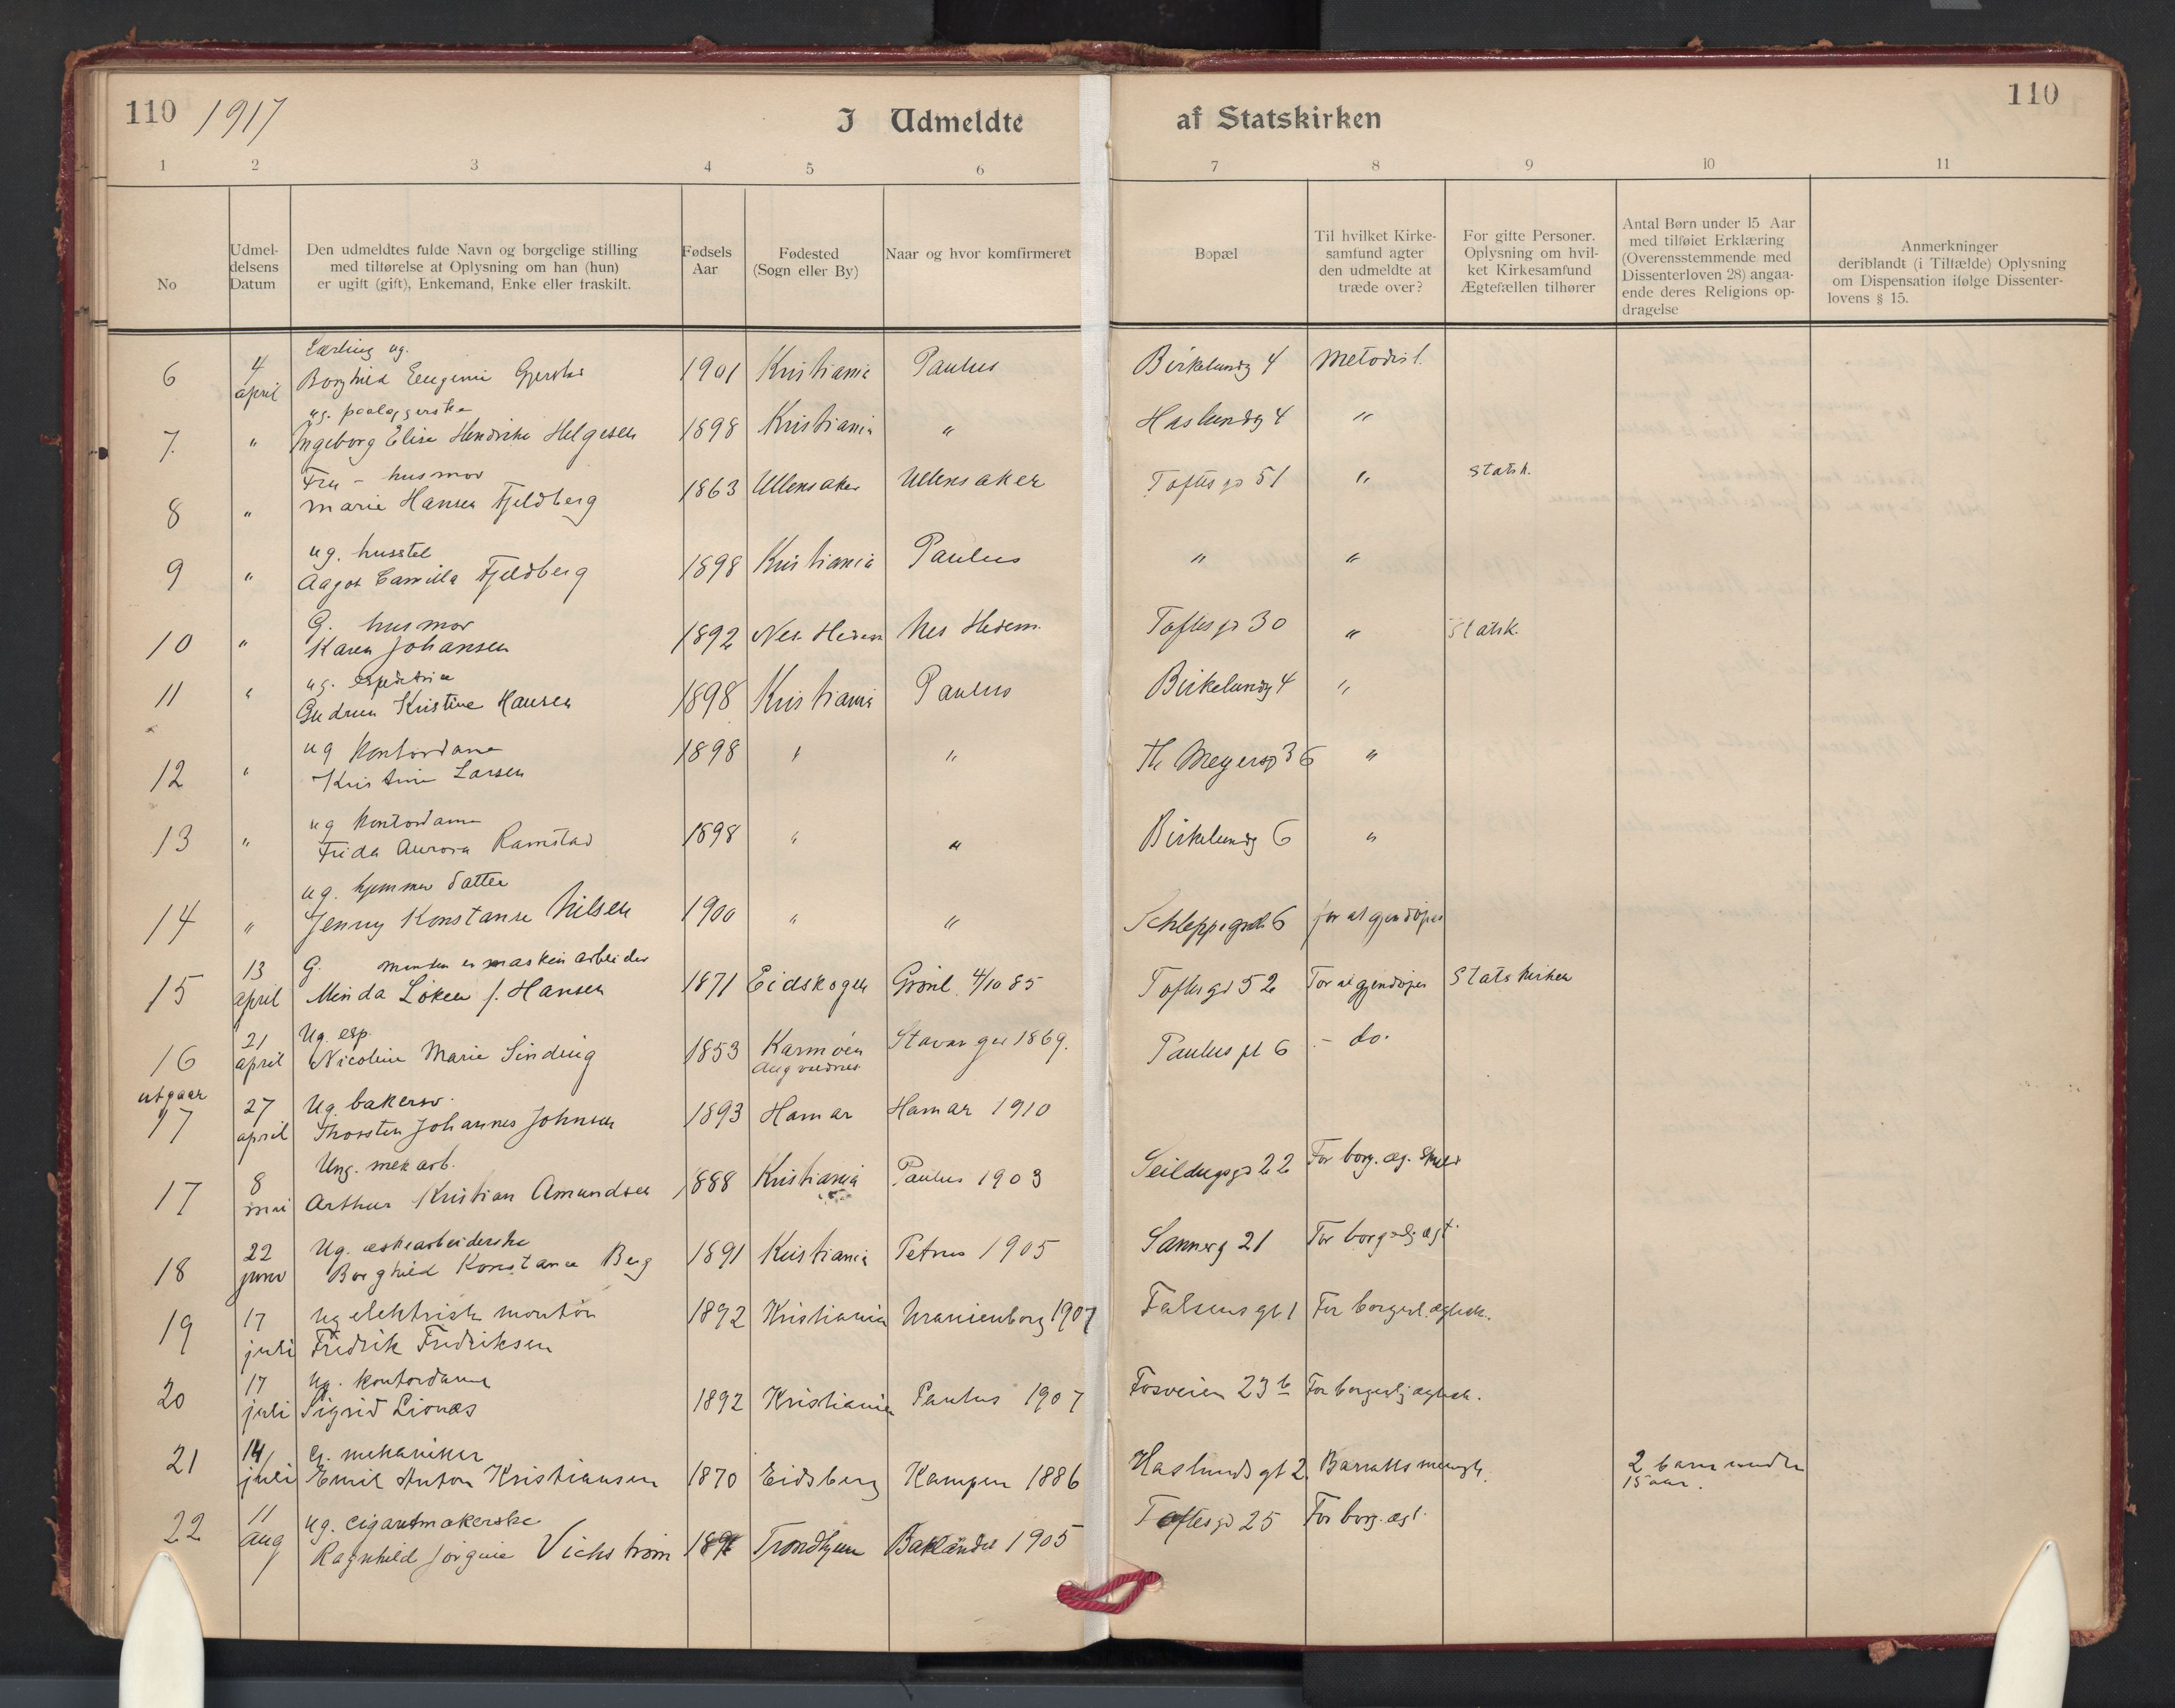 110 1917 I Udmeldte af Statskirken 110
1 2 3 4 5 6 7 8 9 10 11
No
Udmel-
delsens
Datum
Den udmeldtes fulde Navn og borgelige stilling
med tilførelse af Oplysning om han (hun)
er ugift (gift), Enkemand, Enke eller fraskilt.
Fødsels
Aar
Fødested
(Sogn eller By)
Naar og hvor komfirmeret
Bopæl
Til hvilket Kirke-
samfund agter
den udmeldte at
træde over?
For gifte Personer.
Oplysning om hvil-
ket Kirkesamfund
Ægtefællen tilhører
Antal Børn under 15 Aar
med tilføiet Erklæring
(Overensstemmende med
Dissenterloven 28) angaa-
ende deres Religions op-
dragelse
Anmerkninger
deriblandt (i Tilfælde) Oplysning
om Dispensation ifølge Dissenter-
lovens § 15.
Lærling ug.
6 4 april Borghild Eugenie 1901 Kristiania Paulus Birkelundg 4 Metodist.
ug. paalæggerske
7. " Ingeborg Elise Hendrikke Helgesen 1898 Kristiania " Haslundg 4 "
Fru - husmor
8 " Marie Hansen Fjeldberg 1863 Ullensaker Ullensaker Toftes gd 51 " Statsk.
ug. husstel
9 " Aagot Camilla Fjeldberg 1898 Kristiania Paulus " "
G. husmor
10 " Karen Johansen 1892 Nes Hedem Nes Hedem. Toftes gd 30 " Statsk.
ug. espeditrice
11 " Gudrun Kristine Hansen 1898 Kristiania Paulus Birkelundg 4 "
ug kontordame
12 " Kristine Larsen 1898 " " Th. Meyersg 36 "
ug kontordame
13 " Frida Aurora Ramstad 1898 " " Birkelundg 6 "
ug. hjemmev datter
14 " Jenny Konstanse Nilsen 1900 " " Schleppegrds 6 for at gjendöpes
G. manden er maskinarbeider
15 13 april Minda Löken f. Hansen 1871 Eidskogen Grönl. 4/10 85 Toftes gd 52 For at gjendöpes Statskirken
Ug. esp.
16 21 april Nicoline Marie Sinding 1853 Karmöen Stavanger 1869. Paulus pl 6 - do.
utgaar
Ug. bakersv.
17 27 april Thorsten Johannes Johnsen 1893 Hamar Hamar 1910
Ung. mek arb.
17 8 mai Arthur Kristian Amundsen 1888 Kristiania Paulus 1903 Seildugsgd 22 For borg. æg.
Ug. æskearbeiderske
18 22 juni Borghild Konstanse Berg 1891 Kristiania Petrus 1905 Sannerg 21 For borgelig ægt.
Ug elektrisk montör
19 17 juli Fredrik Fredriksen 1892 Kristiania Uranienborg 1907 Falsens gt. 1 For borgerl. ægtesk.
Ug. kontordame
20 17 juli Sigrid Lionæs 1892 Kristiania Paulus 1907 Fosveien 23 b For borgerlig ægtesk.
G. mekaniker
21 14 juli Emil Anton Kristiansen 1870 Eidsberg Kampen 1886 Haslunds gt 2. Barratts menigh. 2 barn under
15 aar.
ug. cigaretmakerske
22 11 aug Ragnhild Jörgine Vickström Trondhjem Baklandet 1905 Toftes gd 25 For borg. ægt.